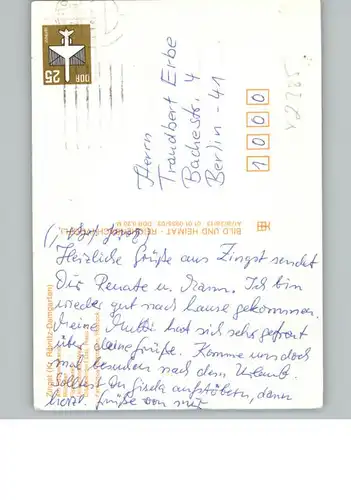 DDR
25
Herrn
Traudbert Erbe
Bachestr. 4
Berlin - 41
1000
V2365
BILD UND HEIMAT · REICHENBACH (VOGTL)
Zingst (Kr. Ribnitz-Damgarten)
Herzliche Grüße aus Zingst sendet
Dir Renate u. Mann. Ich bin
wieder gut nach hause gekommen.
Meine Mutti hat sich sehr gefreut
über deine Grüße. Komme uns doch
mal besuchen nach dem Urlaub.
Solltest Du Gisela aufstöbern, dann
herzl. Grüße von mir